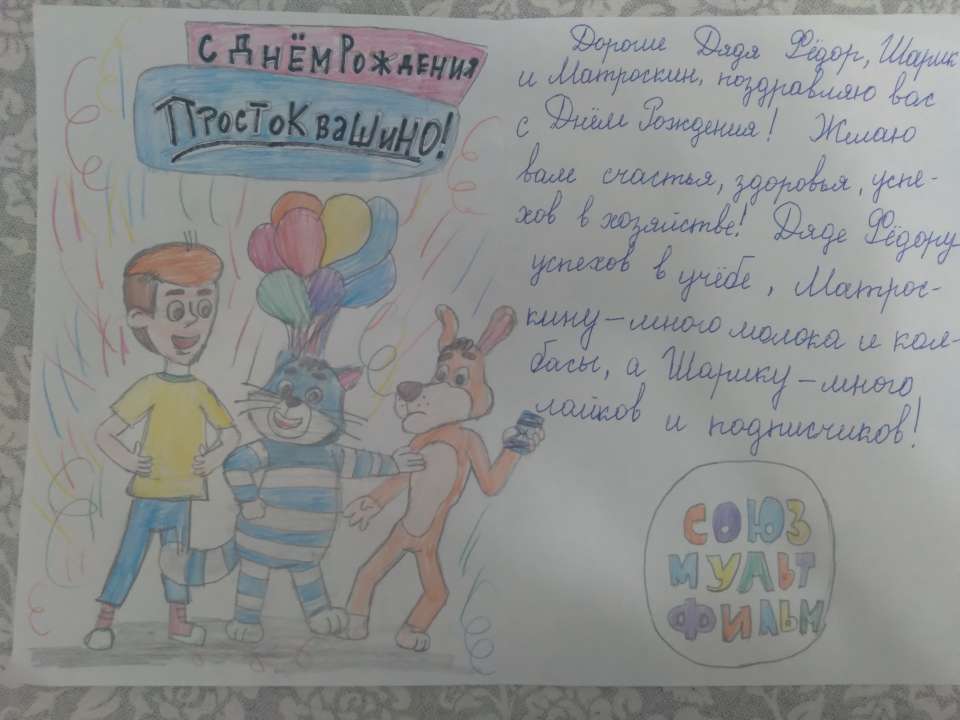 С ДНЁМ РОЖДЕНИЯ
ПРОСТОКВАШИНО!
Дорогие Дядя Фёдор, Шарик
и Матроскин, поздравляю вас
с Днём Рождения! Желаю
вам счастья, здоровья, успе-
хов в хозяйстве! Дяде Фёдору
успехов в учёбе, Матрос-
кину – много молока и кол-
басы, а Шарику – много
лайков и подписчиков!
СОЮЗ
МУЛЬТ
ФИЛЬМ